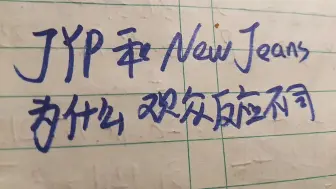 JYP 和 New Jeans
为什么 观众反应不同